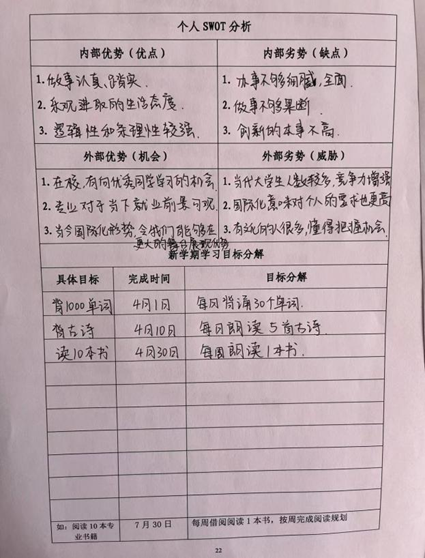 个人 SWOT 分析
内部优势（优点） 内部劣势（缺点）
1. 做事认真,踏实. 1. 办事不够细腻,全面.
2. 乐观进取的生活态度 2. 做事不够果断
3. 逻辑性和条理性较强. 3. 创新的本事不高.
外部优势（机会） 外部劣势（威胁）
1. 在校,有向优秀同学学习的机会 1. 当代大学生人数较多,竞争力增强
2. 专业对于当下就业前景可观. 2. 国际化意味对个人的要求也更高
3. 当今国际化形势,令我们能够在 3. 有远见的人很多,懂得把握机会.
更大的舞台展现
新学期学习目标分解
具体目标 完成时间 目标分解
背1000单词 4月1日 每日背诵30个单词.
背古诗 4月10日 每日朗读5首古诗.
读10本书 4月30日 每周朗读1本书.
如：阅读 10 本专 7 月 30 日 每周借阅阅读 1 本书，按周完成阅读规划
业书籍
22